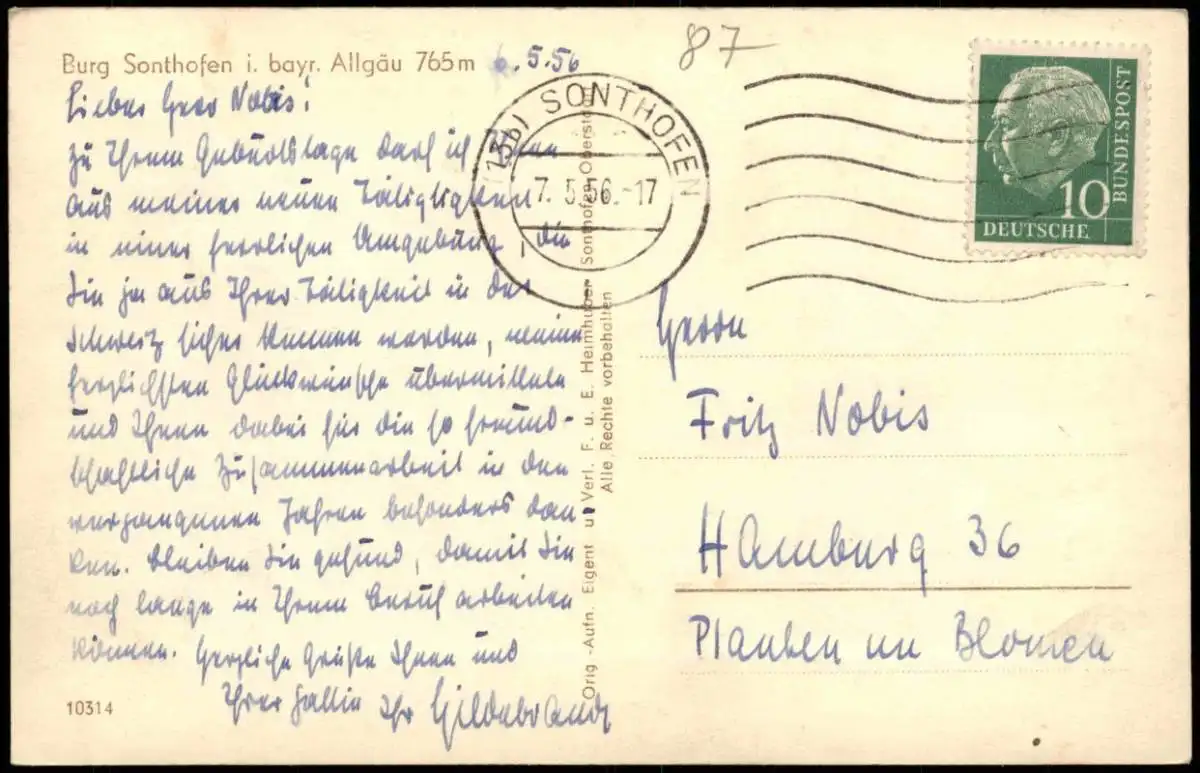 Burg Sonthofen i. bayr. Allgäu 765m
6.5.56
87
Lieber Herr Nobis!
Zu Ihrem Geburtstage darf ich Ihnen
aus meiner neuen Tätigkeit
in einer herrlichen Umgebung, die
Sie ja aus Ihrer Tätigkeit in der
Schweiz sicher kennen werden, meine
herzlichsten Glückwünsche übermitteln
und Ihnen dabei für die so freund-
schaftliche Zusammenarbeit in den
vergangenen Jahren besonders dan
ken. Bleiben Sie gesund, damit Sie
noch lange in Ihrem Beruf arbeiten
können. Herzliche Grüße Ihnen und
Ihrer Gattin Ihr Hildebrandt
10314
Orig.-Aufn. Eigent u. Verl. F. u. E. Heimhuber Sonthofen Oberstdorf
Alle Rechte vorbehalten
(13b) SONTHOFEN
7.5.56.-17
DEUTSCHE
BUNDESPOST
10
Herrn
Fritz Nobis
Hamburg 36
Planten un Blomen